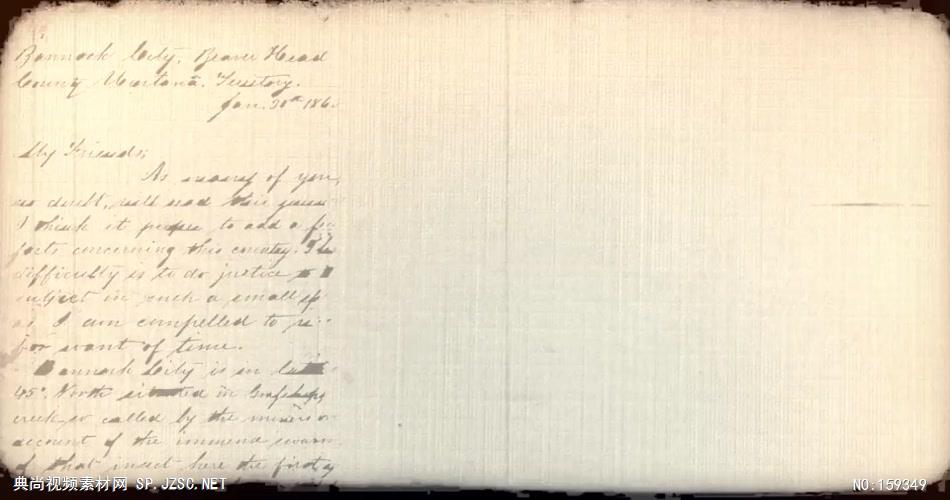 Bannock City. Beaver Head
County Montana. Territory.
Jan. 20th 186
My Friends;
As many of you,
no doubt, will read this
I think it proper to add a few
facts concerning this country. The
difficulty is to do justice to a
subject in such a small
as I am compelled to
for want of time.
Bannock City is in
45° North situated in
creek, so called by the miners on
account of the immense swarm
of that insect here the first y
典尚视频素材网 SP.JZSC.NET
NO:159349